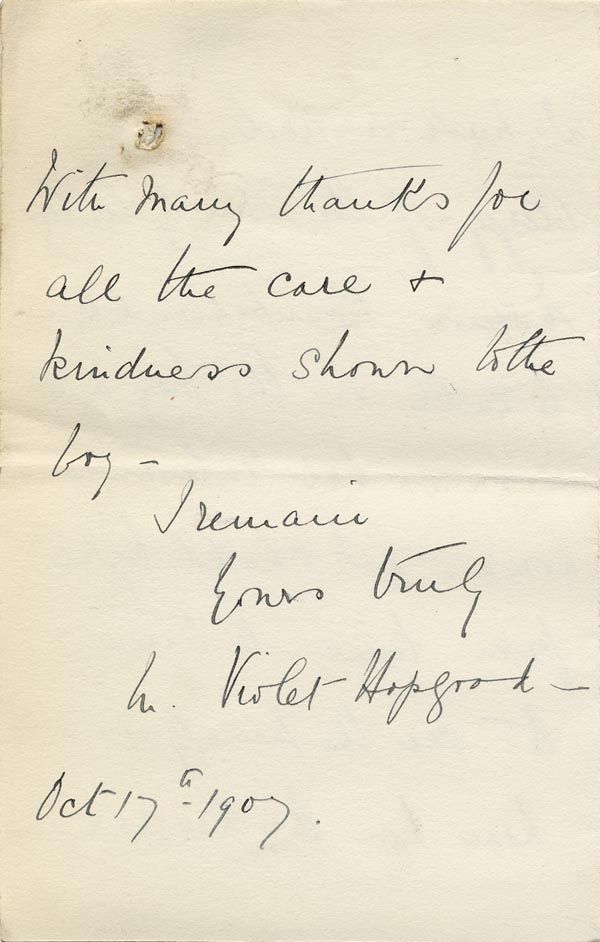 With many thanks for
all the care +
kindness shown to the
boy -
I remain
Yours truly
M. Violet Hopgood -
Oct 17th 1907.